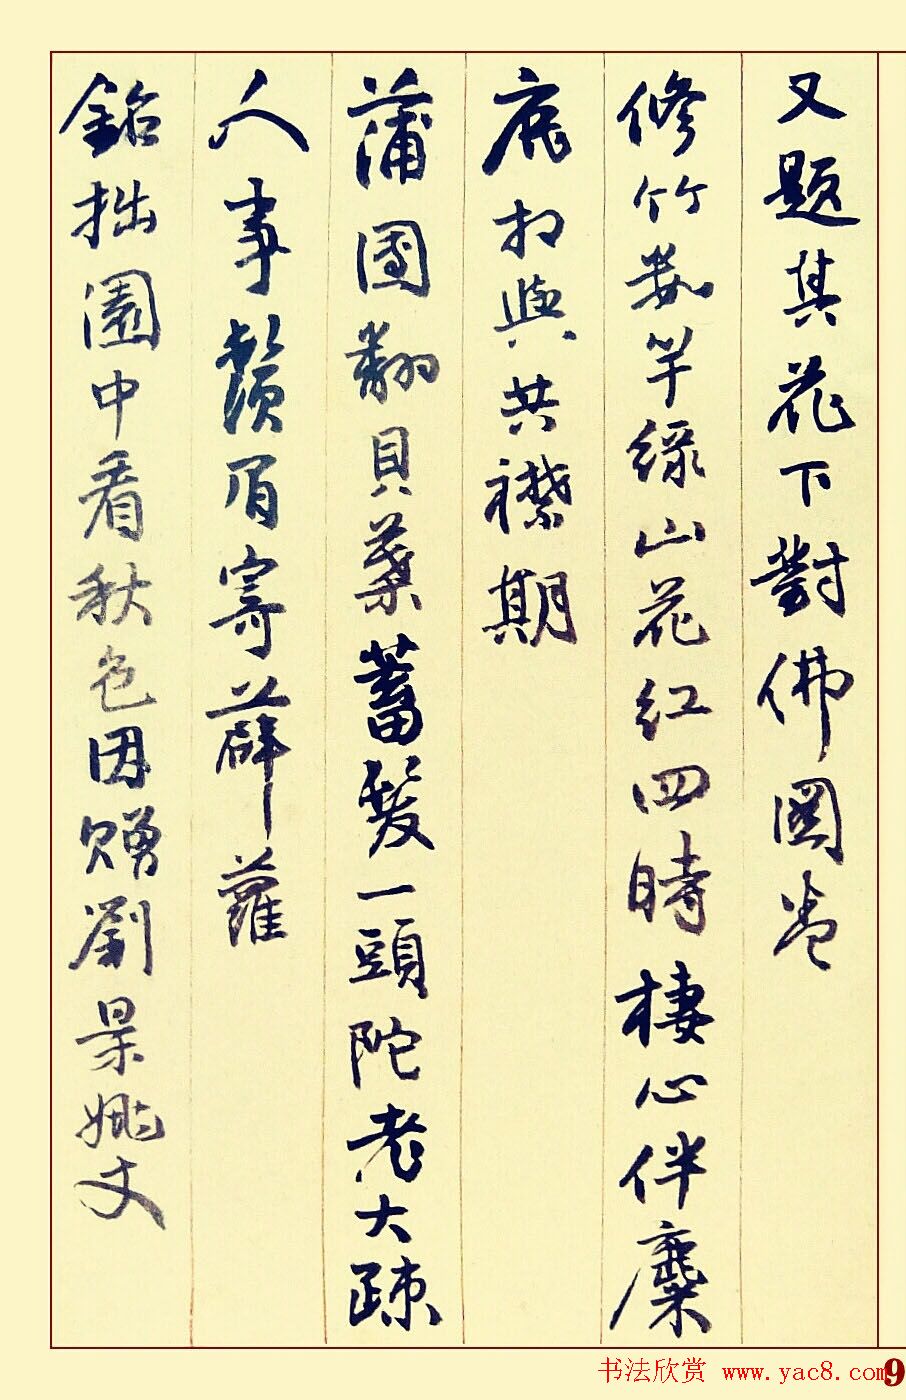 又題其花下對佛圖卷
修竹數竿綠山花紅四時棲心伴麋
鹿相與共襟期
蒲團翻貝葉蓄髮一頭陀老大疎
人事鬚眉寄薜蘿
銘拙園中看秋色因贈劉景姚丈
书法欣赏 www.yac8.com
9